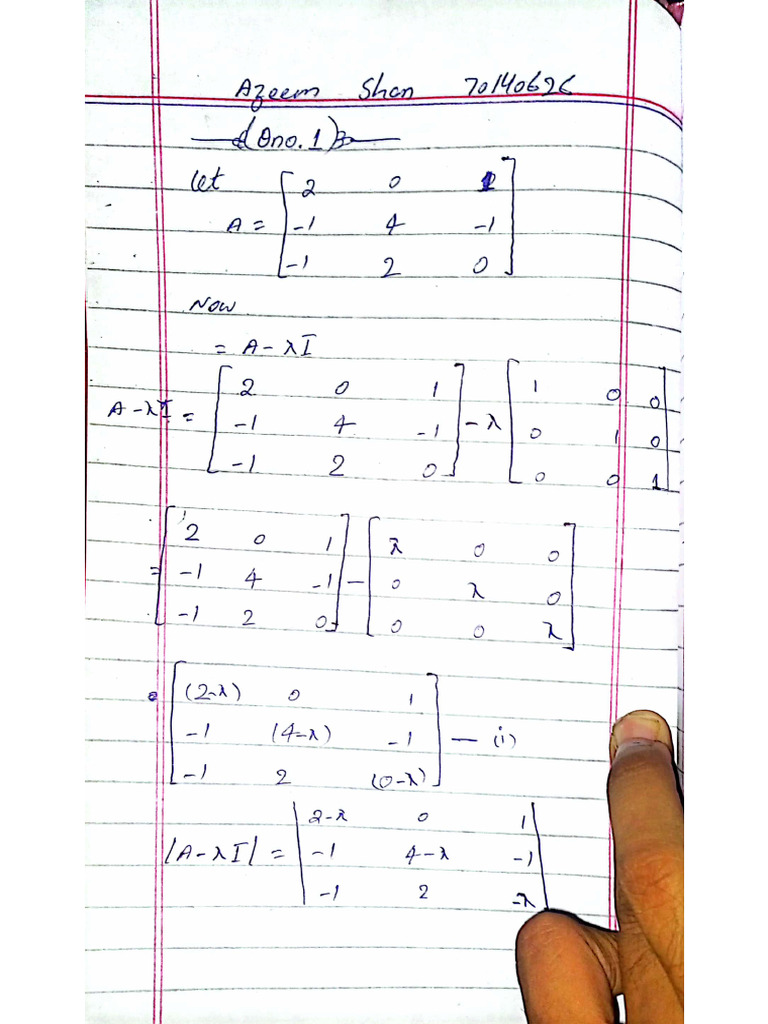 Azeem Shan 70140626
(Qno. 1)
let
A = [ 2 0 1
-1 4 -1
-1 2 0 ]
Now
= A - λI
A - λI = [ 2 0 1
-1 4 -1
-1 2 0 ] - λ [ 1 0 0
0 1 0
0 0 1 ]
= [ 2 0 1
-1 4 -1
-1 2 0 ] - [ λ 0 0
0 λ 0
0 0 λ ]
[ (2-λ) 0 1
-1 (4-λ) -1
-1 2 (0-λ) ] — (i)
|A - λI| = | 2-λ 0 1
-1 4-λ -1
-1 2 -λ |